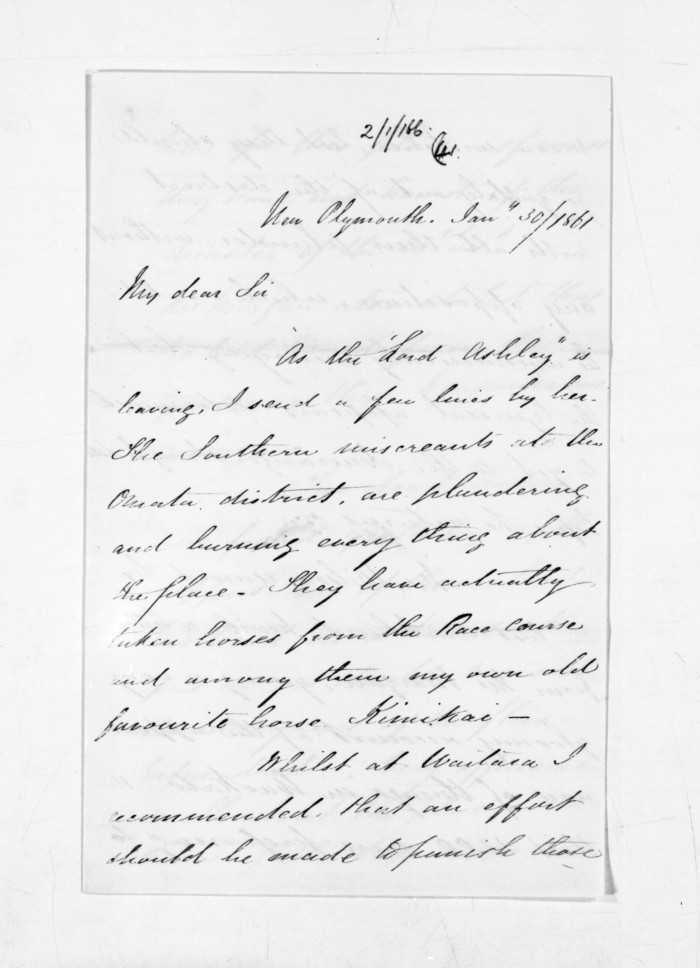 2/1/186
New Plymouth. Jany 30/1861
My dear Sir
As the "Lord Ashley" is
leaving, I send a few lines by her.
The Southern miscreants at the
Omata district, are plundering
and burning every thing about
the place - They have actually
taken horses from the Race course
and among them my own old
favourite horse Kimikai -
Whilst at Waitara I
recommended, that an effort
should be made to punish those